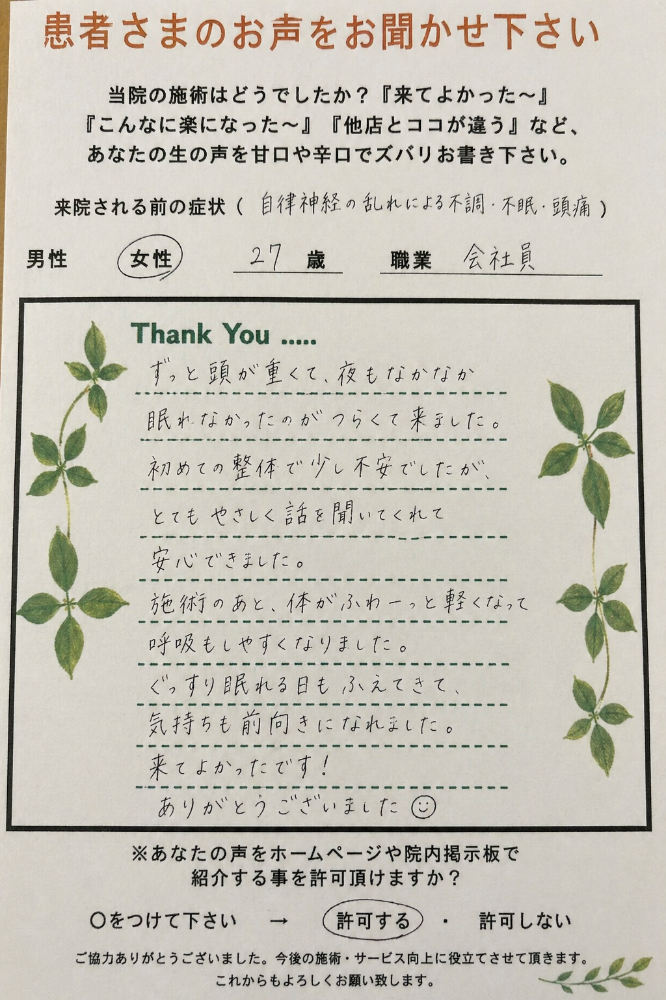 患者さまのお声をお聞かせ下さい
当院の施術はどうでしたか？『来てよかった〜』
『こんなに楽になった〜』『他店とココが違う』など、
あなたの生の声を甘口や辛口でズバリお書き下さい。
来院される前の症状（ 自律神経の乱れによる不調・不眠・頭痛 ）
男性 女性 27 歳 職業 会社員
Thank You .....
ずっと頭が重くて、夜もなかなか
眠れなかったのがつらくて来ました。
初めての整体で少し不安でしたが、
とてもやさしく話を聞いてくれて
安心できました。
施術のあと、体がふわーっと軽くなって
呼吸もしやすくなりました。
ぐっすり眠れる日もふえてきて、
気持ちも前向きになれました。
来てよかったです！
ありがとうございました☺
※あなたの声をホームページや院内掲示板で
紹介する事を許可頂けますか？
〇をつけて下さい → 許可する ・ 許可しない
ご協力ありがとうございました。今後の施術・サービス向上に役立てさせて頂きます。
これからもよろしくお願い致します。